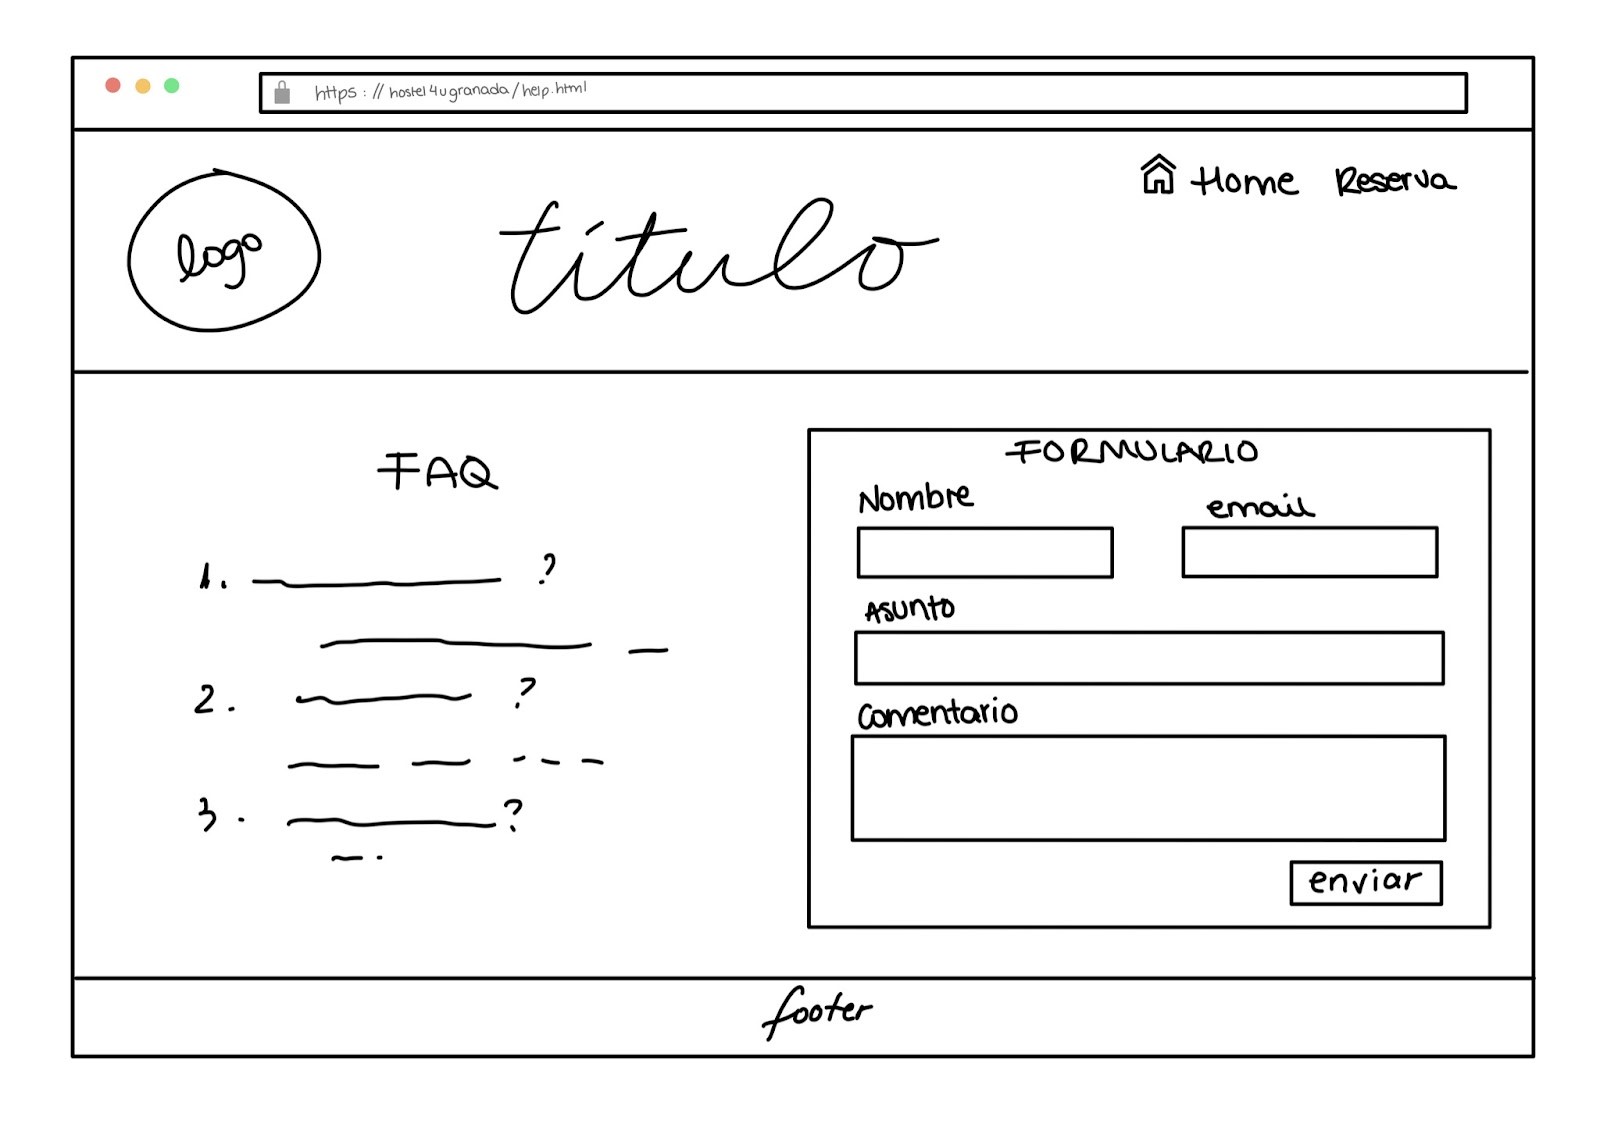 https://hostel4ugranada/help.html
Home Reserva
logo
título
FAQ
1. ?
2. ?
3. ?
FORMULARIO
Nombre email
Asunto
Comentario
enviar
footer